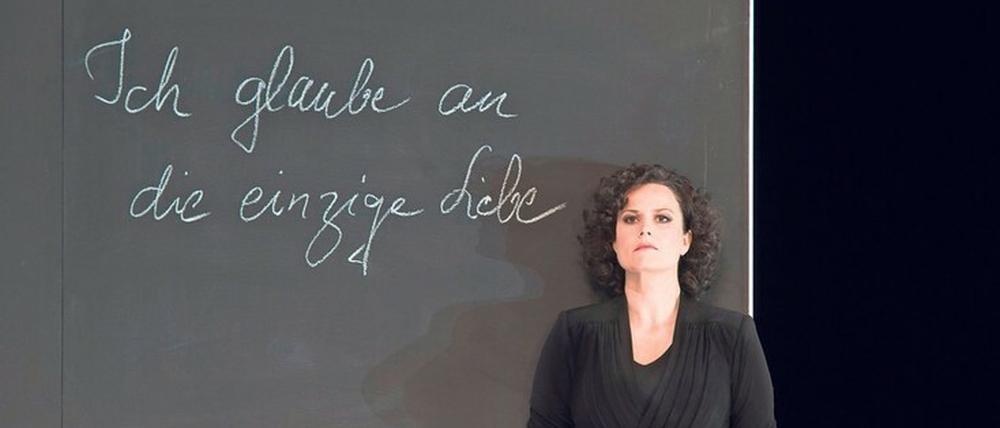 Ich glaube an
die einzige Liebe